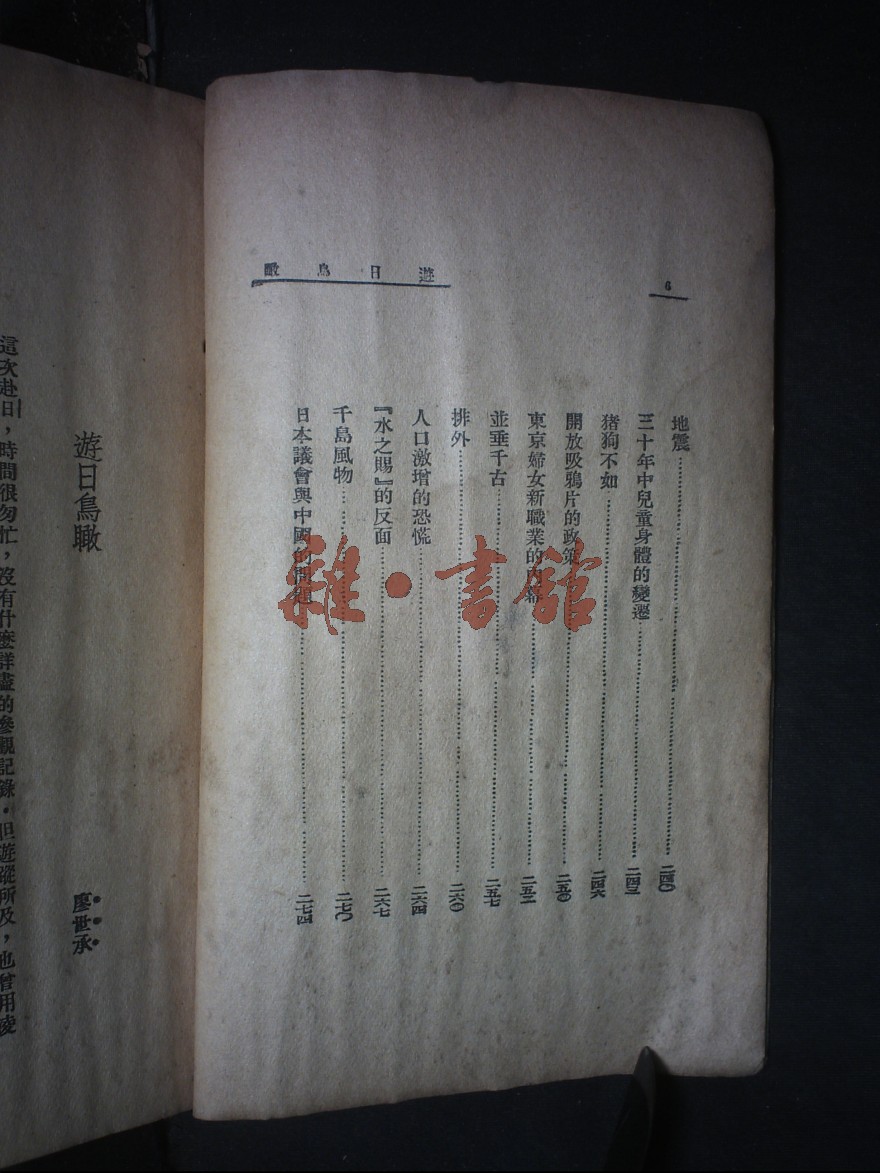 6
遊日鳥瞰
地震……二四〇
三十年中兒童身體的變遷……二四三
猪狗不如……二四六
開放吸鴉片的政策……二五〇
東京婦女新職業的內幕……二五三
並垂千古……二五七
排外……二六〇
人口激增的恐慌……二六四
『水之賜』的反面……二六七
千島風物……二七〇
日本議會與中國的問題……二七四
雜·書館
遊日鳥瞰
廖世承
這次赴日，時間很匆忙，沒有什麼詳盡的參觀記錄。但遊蹤所及，也曾用凌